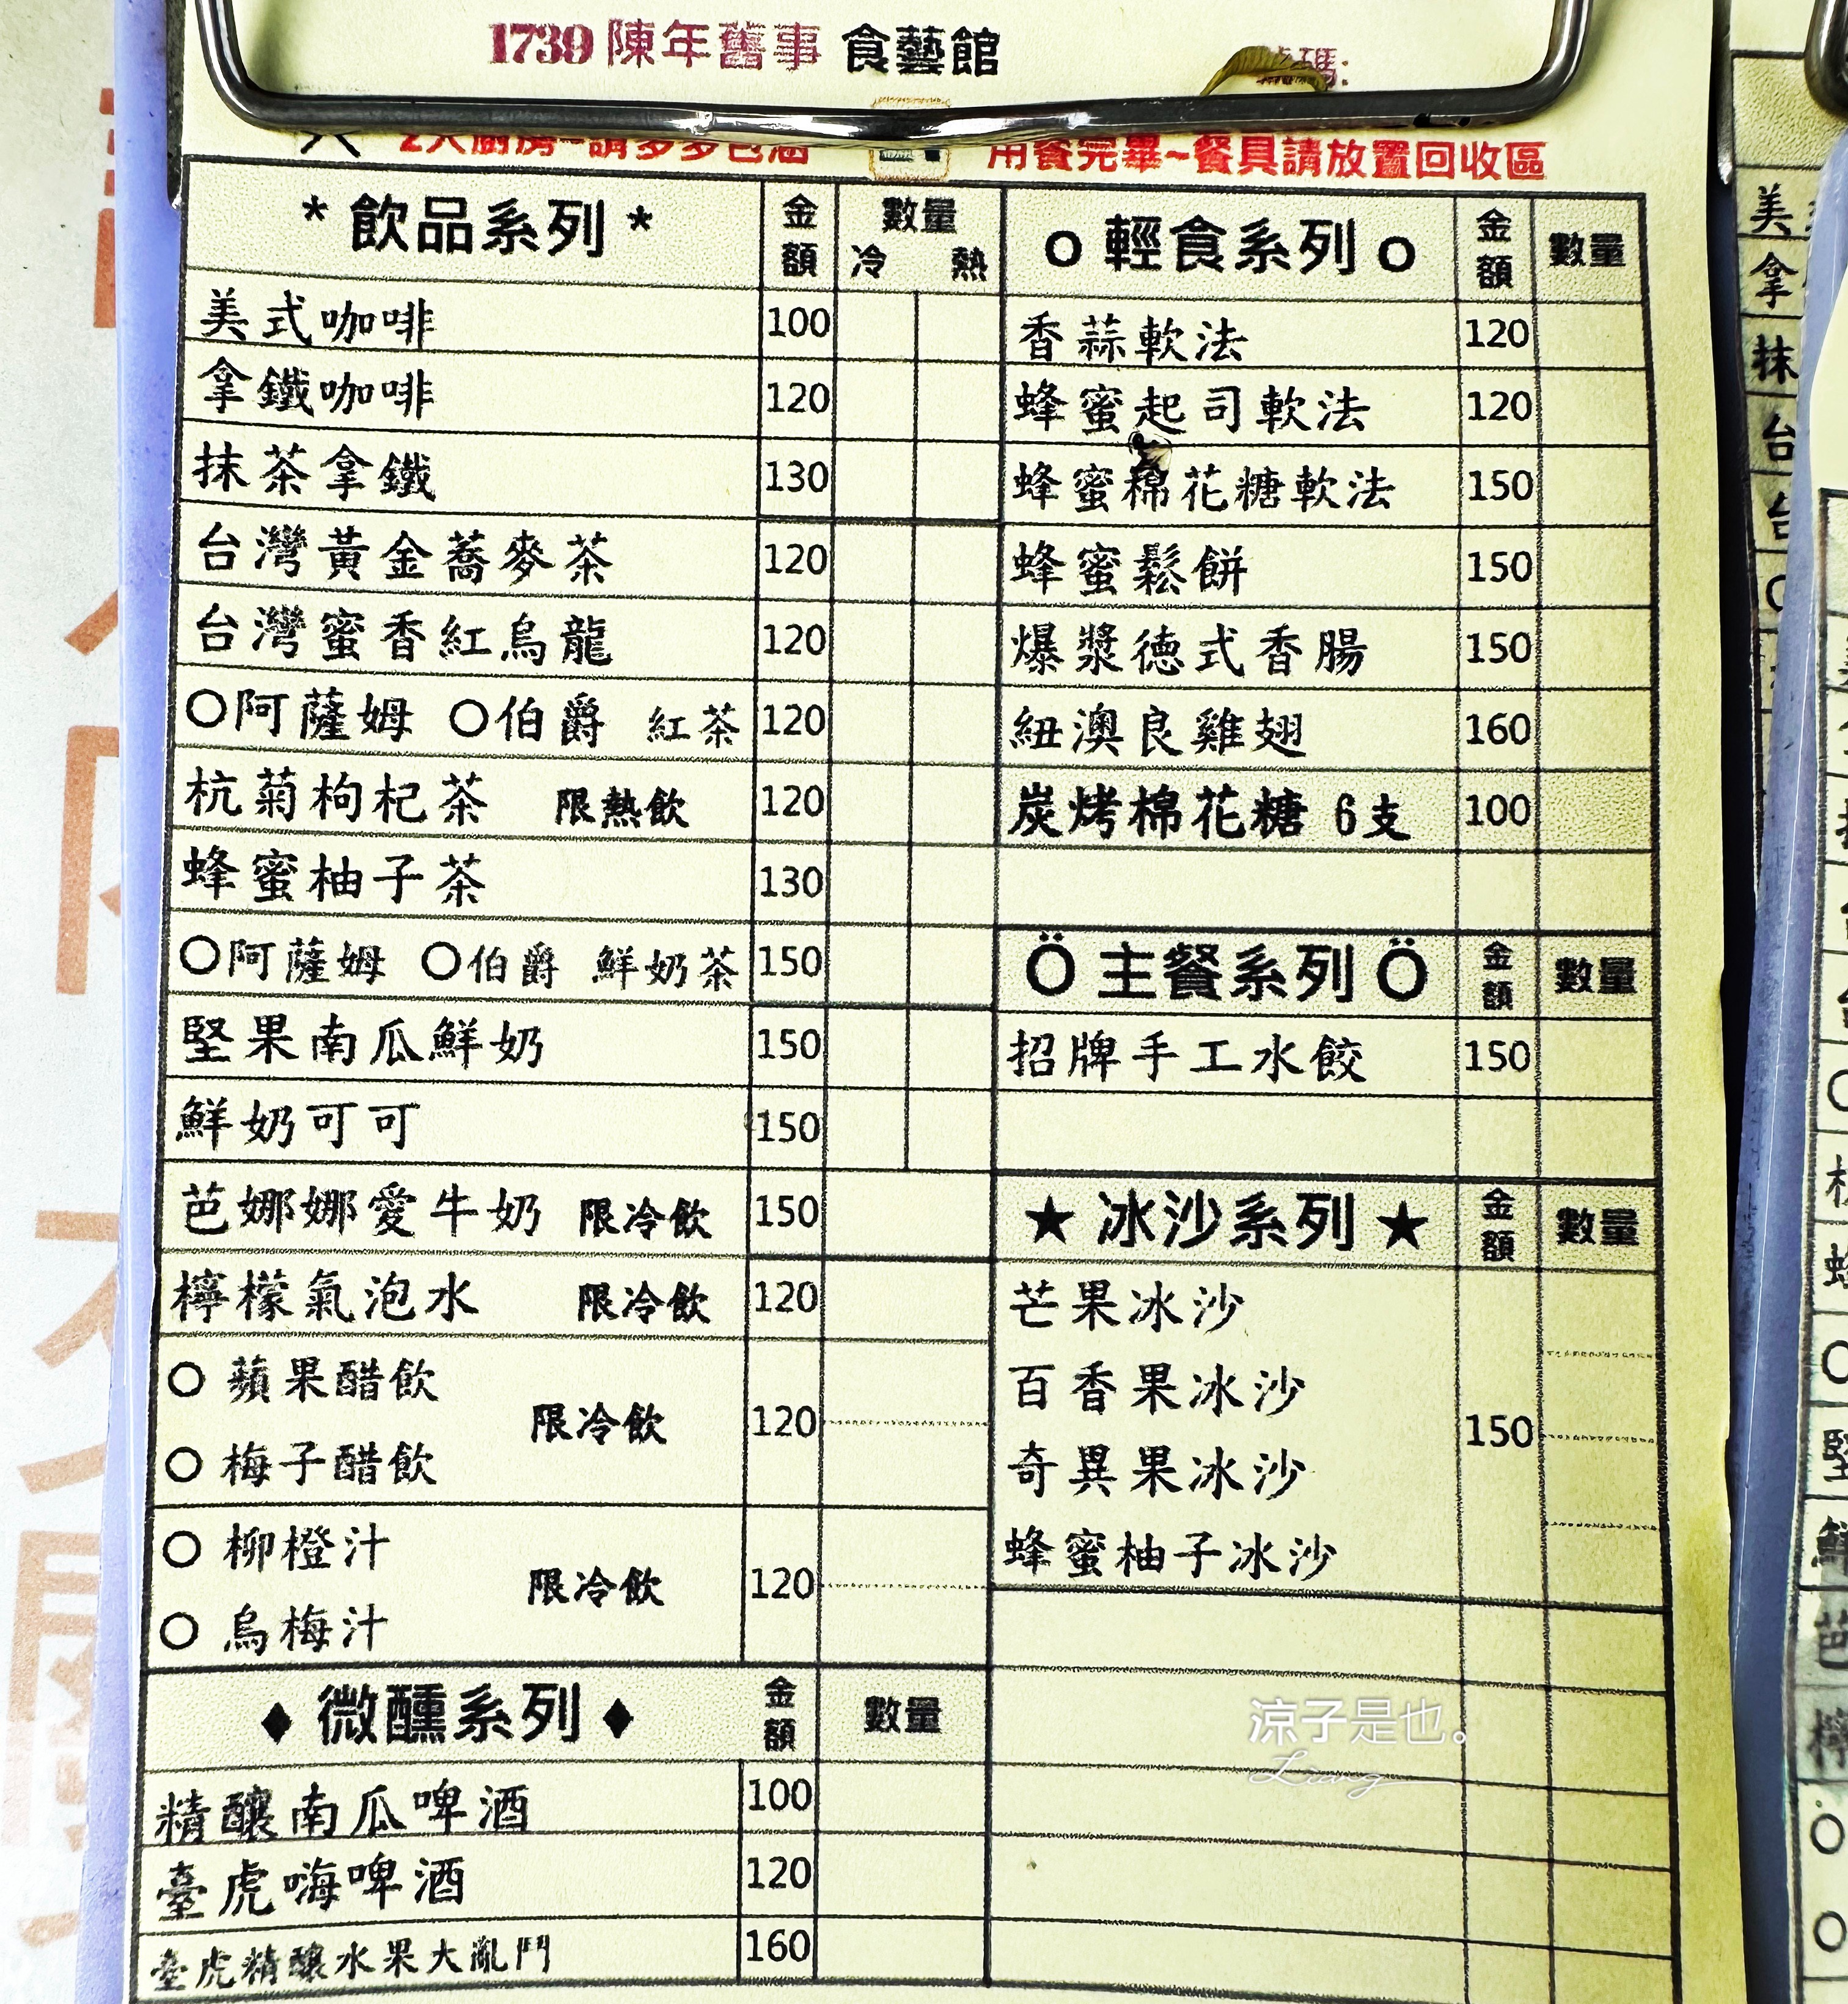 1739 陳年舊事 食藝館
碼:
2人廚房~請多多包涵
用餐完畢~餐具請放置回收區
* 飲品系列 * 金額 數量 冷 熱
美式咖啡 100
拿鐵咖啡 120
抹茶拿鐵 130
台灣黃金蕎麥茶 120
台灣蜜香紅烏龍 120
○阿薩姆 ○伯爵 紅茶 120
杭菊枸杞茶 限熱飲 120
蜂蜜柚子茶 130
○阿薩姆 ○伯爵 鮮奶茶 150
堅果南瓜鮮奶 150
鮮奶可可 150
芭娜娜愛牛奶 限冷飲 150
檸檬氣泡水 限冷飲 120
○ 蘋果醋飲
限冷飲 120
○ 梅子醋飲
○ 柳橙汁
限冷飲 120
○ 烏梅汁
♦ 微醺系列 ♦ 金額 數量
精釀南瓜啤酒 100
臺虎嗨啤酒 120
臺虎精釀水果大亂鬥 160
o 輕食系列 o 金額 數量
香蒜軟法 120
蜂蜜起司軟法 120
蜂蜜棉花糖軟法 150
蜂蜜鬆餅 150
爆漿德式香腸 150
紐澳良雞翅 160
炭烤棉花糖 6支 100
Ö 主餐系列 Ö 金額 數量
招牌手工水餃 150
★ 冰沙系列 ★ 金額 數量
芒果冰沙
百香果冰沙
150
奇異果冰沙
蜂蜜柚子冰沙
涼子是也。
Liang